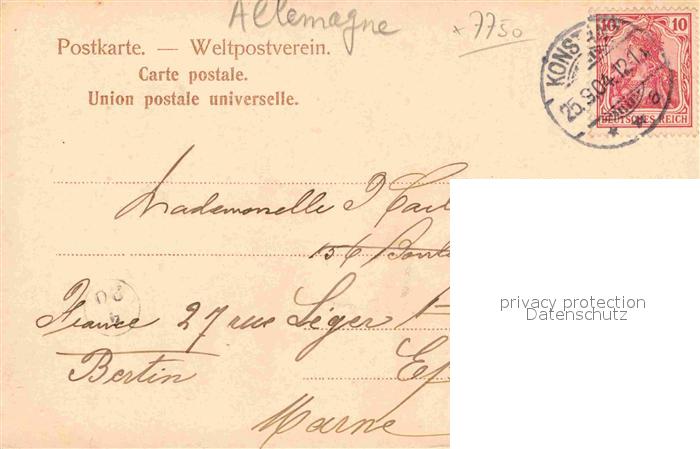 Allemagne
x 7750
Postkarte. — Weltpostverein.
Carte postale.
Union postale universelle.
10 10
DEUTSCHES REICH
KONSTANZ
25.9.04.12-1
Mademoiselle
156
France 27 rue Léger
Bertin
Marne
privacy protection
Datenschutz